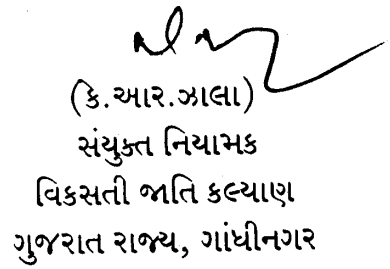 (કે.આર.ઝાલા)
સંયુક્ત નિયામક
વિકસતી જાતિ કલ્યાણ
ગુજરાત રાજ્ય, ગાંધીનગર